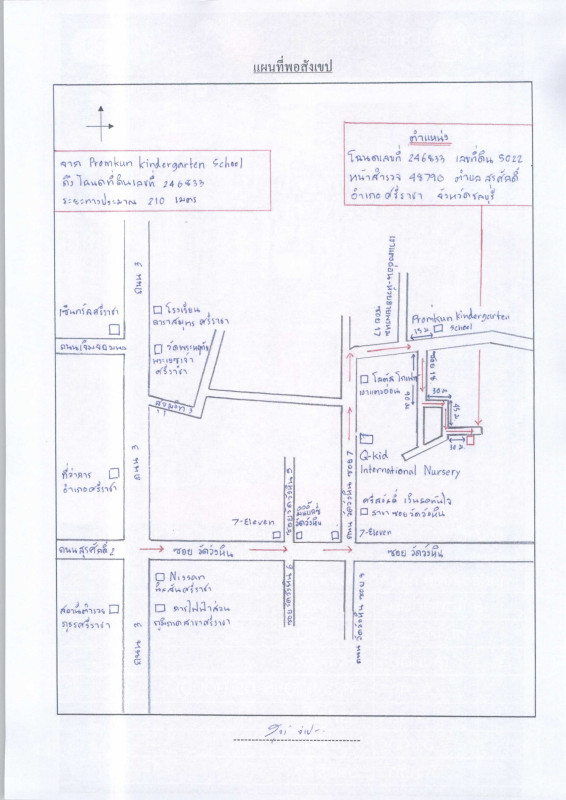 แผนที่พอสังเขป
จาก Promkun Kindergarten School
ถึงโฉนดที่ดินเลขที่ 246833
ระยะทางประมาณ 210 เมตร
ตำแหน่ง
โฉนดเลขที่ 246833 เลขที่ดิน 5022
หน้าสำรวจ 48790 ตำบล สุรศักดิ์
อำเภอ ศรีราชา จังหวัดชลบุรี
ถนน 3
ซอย 17
Promkun Kindergarten
School
15 ม.
โรงเรียน
ดาราสมุทร ศรีราชา
เซ็นทรัลศรีราชา
ถนนเจิมจอมพล
ศรีราชา
ซอย 18
30 ม.
90 ม.
45 ม.
30 ม.
สุขุมวิท 3
ถนน 3
ที่ว่าการ
อำเภอศรีราชา
Q-kid
International Nursery
ถนน วัดวังหิน ซอย 7
ซอยวัดวังหิน 5
สาขา ซอยวัดวังหิน
7-Eleven
7-Eleven
ถนนสุรศักดิ์ 2
ซอย วัดวังหิน
ซอย วัดวังหิน
Nissan
นิสสันศรีราชา
การไฟฟ้าส่วน
ภูมิภาคสาขาศรีราชา
สถานีตำรวจ
ภูธรศรีราชา
ถนน 3
ซอยวัดวังหิน 6
ถนน วัดวังหิน ซอย 8